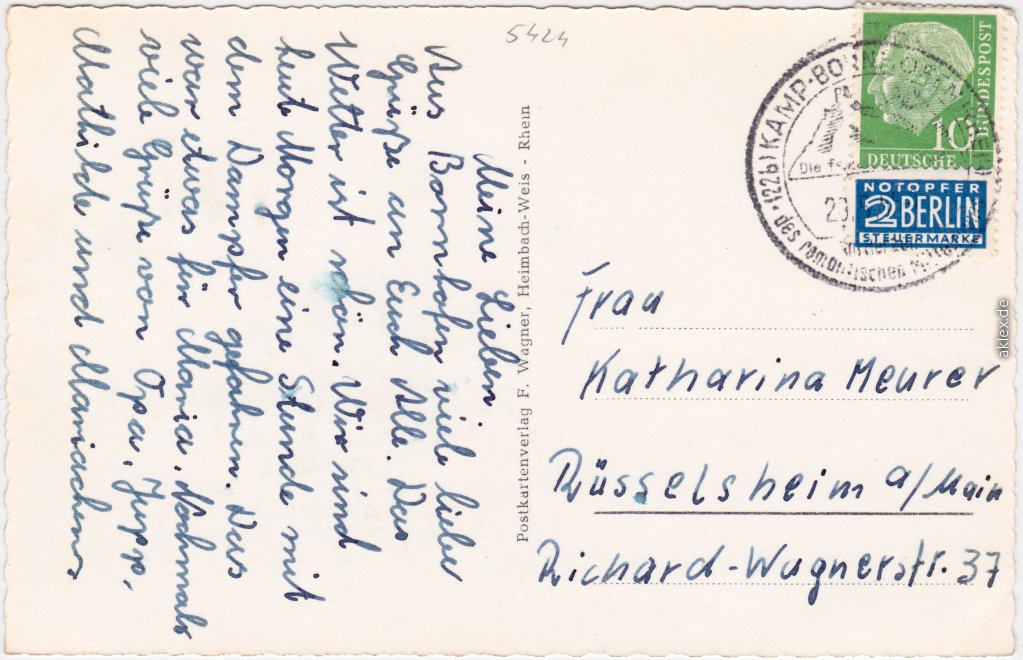 5424
Meine Lieben
Aus Bornhofen viele liebe
Grüße an Euch Alle. Das
Wetter ist schön. Wir sind
heute Morgen eine Stunde mit
dem Dampfer gefahren. Das
war etwas für Maria. Nochmals
viele Grüße von Opa, Jupp,
Mathilde und Mariachen
Postkartenverlag F. Wagner, Heimbach-Weis - Rhein
(22b) KAMP-BORNHOFEN
Die
des romantischen
DEUTSCHE
BUNDESPOST
10
NOTOPFER
2 BERLIN
STEUERMARKE
Frau
Katharina Meurer
Rüsselsheim a/Main
Richard-Wagnerstr. 37
aklex.de